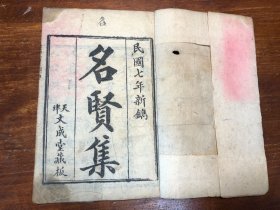 名
民國七年新鐫
名賢集
天津文成堂藏板